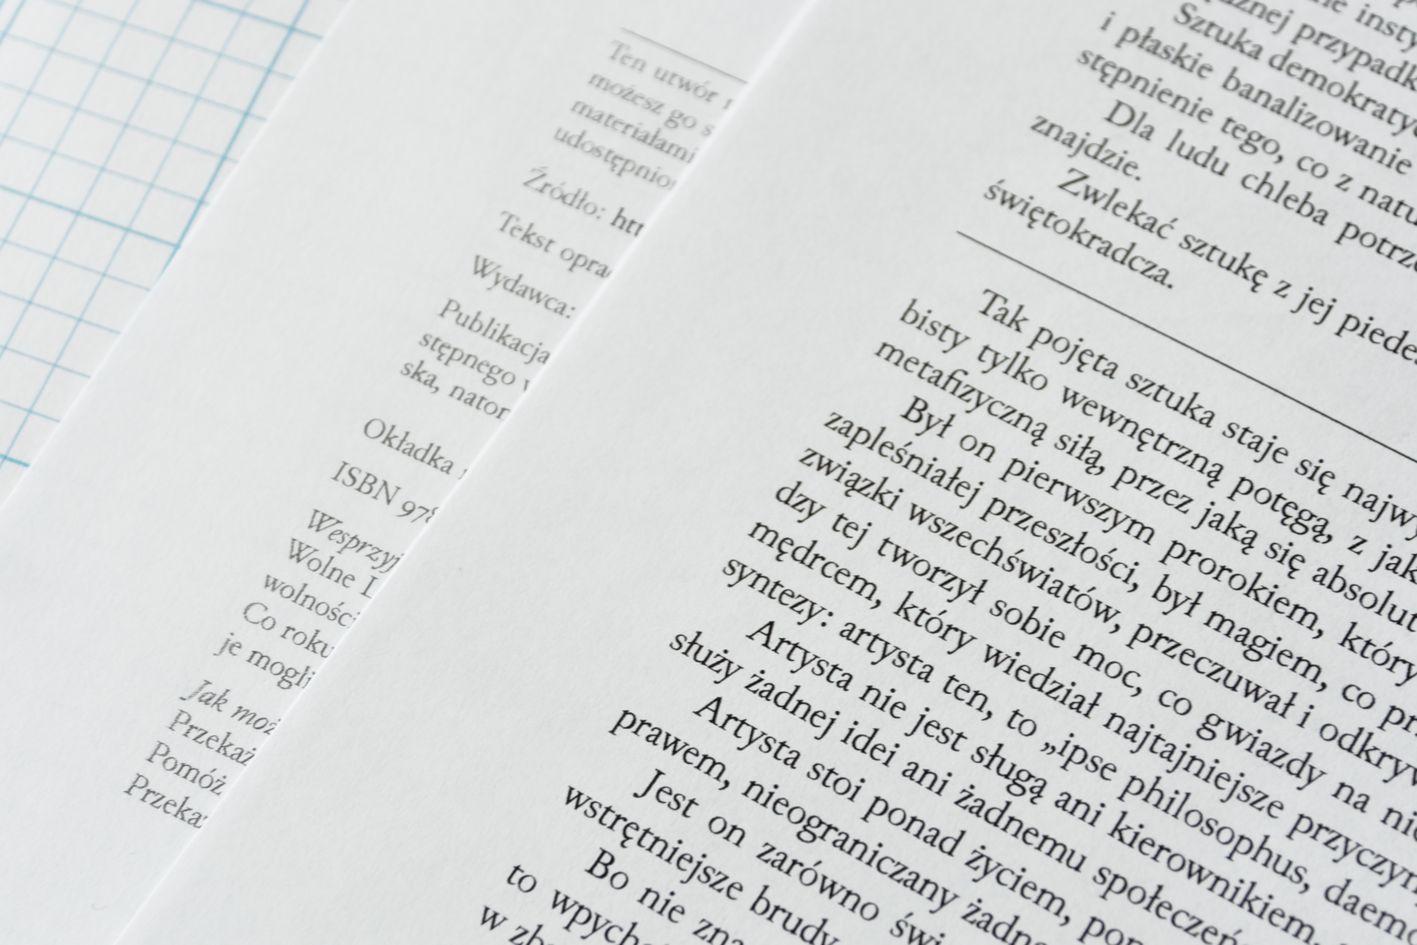 Ten utwór
możesz go
materiałami
udostępnio
Źródło: htt
Tekst opra
Wydawca:
Publikacja
stępnego
ska, nator
Okładka
ISBN 978
Wesprzyj
Wolne L
wolności
Co roku
je mogli
Jak moż
Przekaż
Pomóż
Przekaż
ne insty
znej przypadk
Sztuka demokratyc
i płaskie banalizowanie
stępnienie tego, co z natu
Dla ludu chleba potrze
znajdzie.
Zwlekać sztukę z jej piedes
świętokradcza.
Tak pojęta sztuka staje się najwy
bisty tylko wewnętrzną potęgą, z jak
metafizyczną siłą, przez jaką się absolut
Był on pierwszym prorokiem, który
zapleśniałej przeszłości, był magiem, co pr
związki wszechświatów, przeczuwał i odkryw
dzy tej tworzył sobie moc, co gwiazdy na nie
mędrcem, który wiedział najtajniejsze przyczyn
syntezy: artysta ten, to „ipse philosophus, daemo
Artysta nie jest sługą ani kierownikiem,
służy żadnej idei ani żadnemu społeczeń
Artysta stoi ponad życiem, pon
prawem, nieograniczany żadn
Jest on zarówno świ
wstrętniejsze brudy
Bo nie zna
to wpycha
w zb